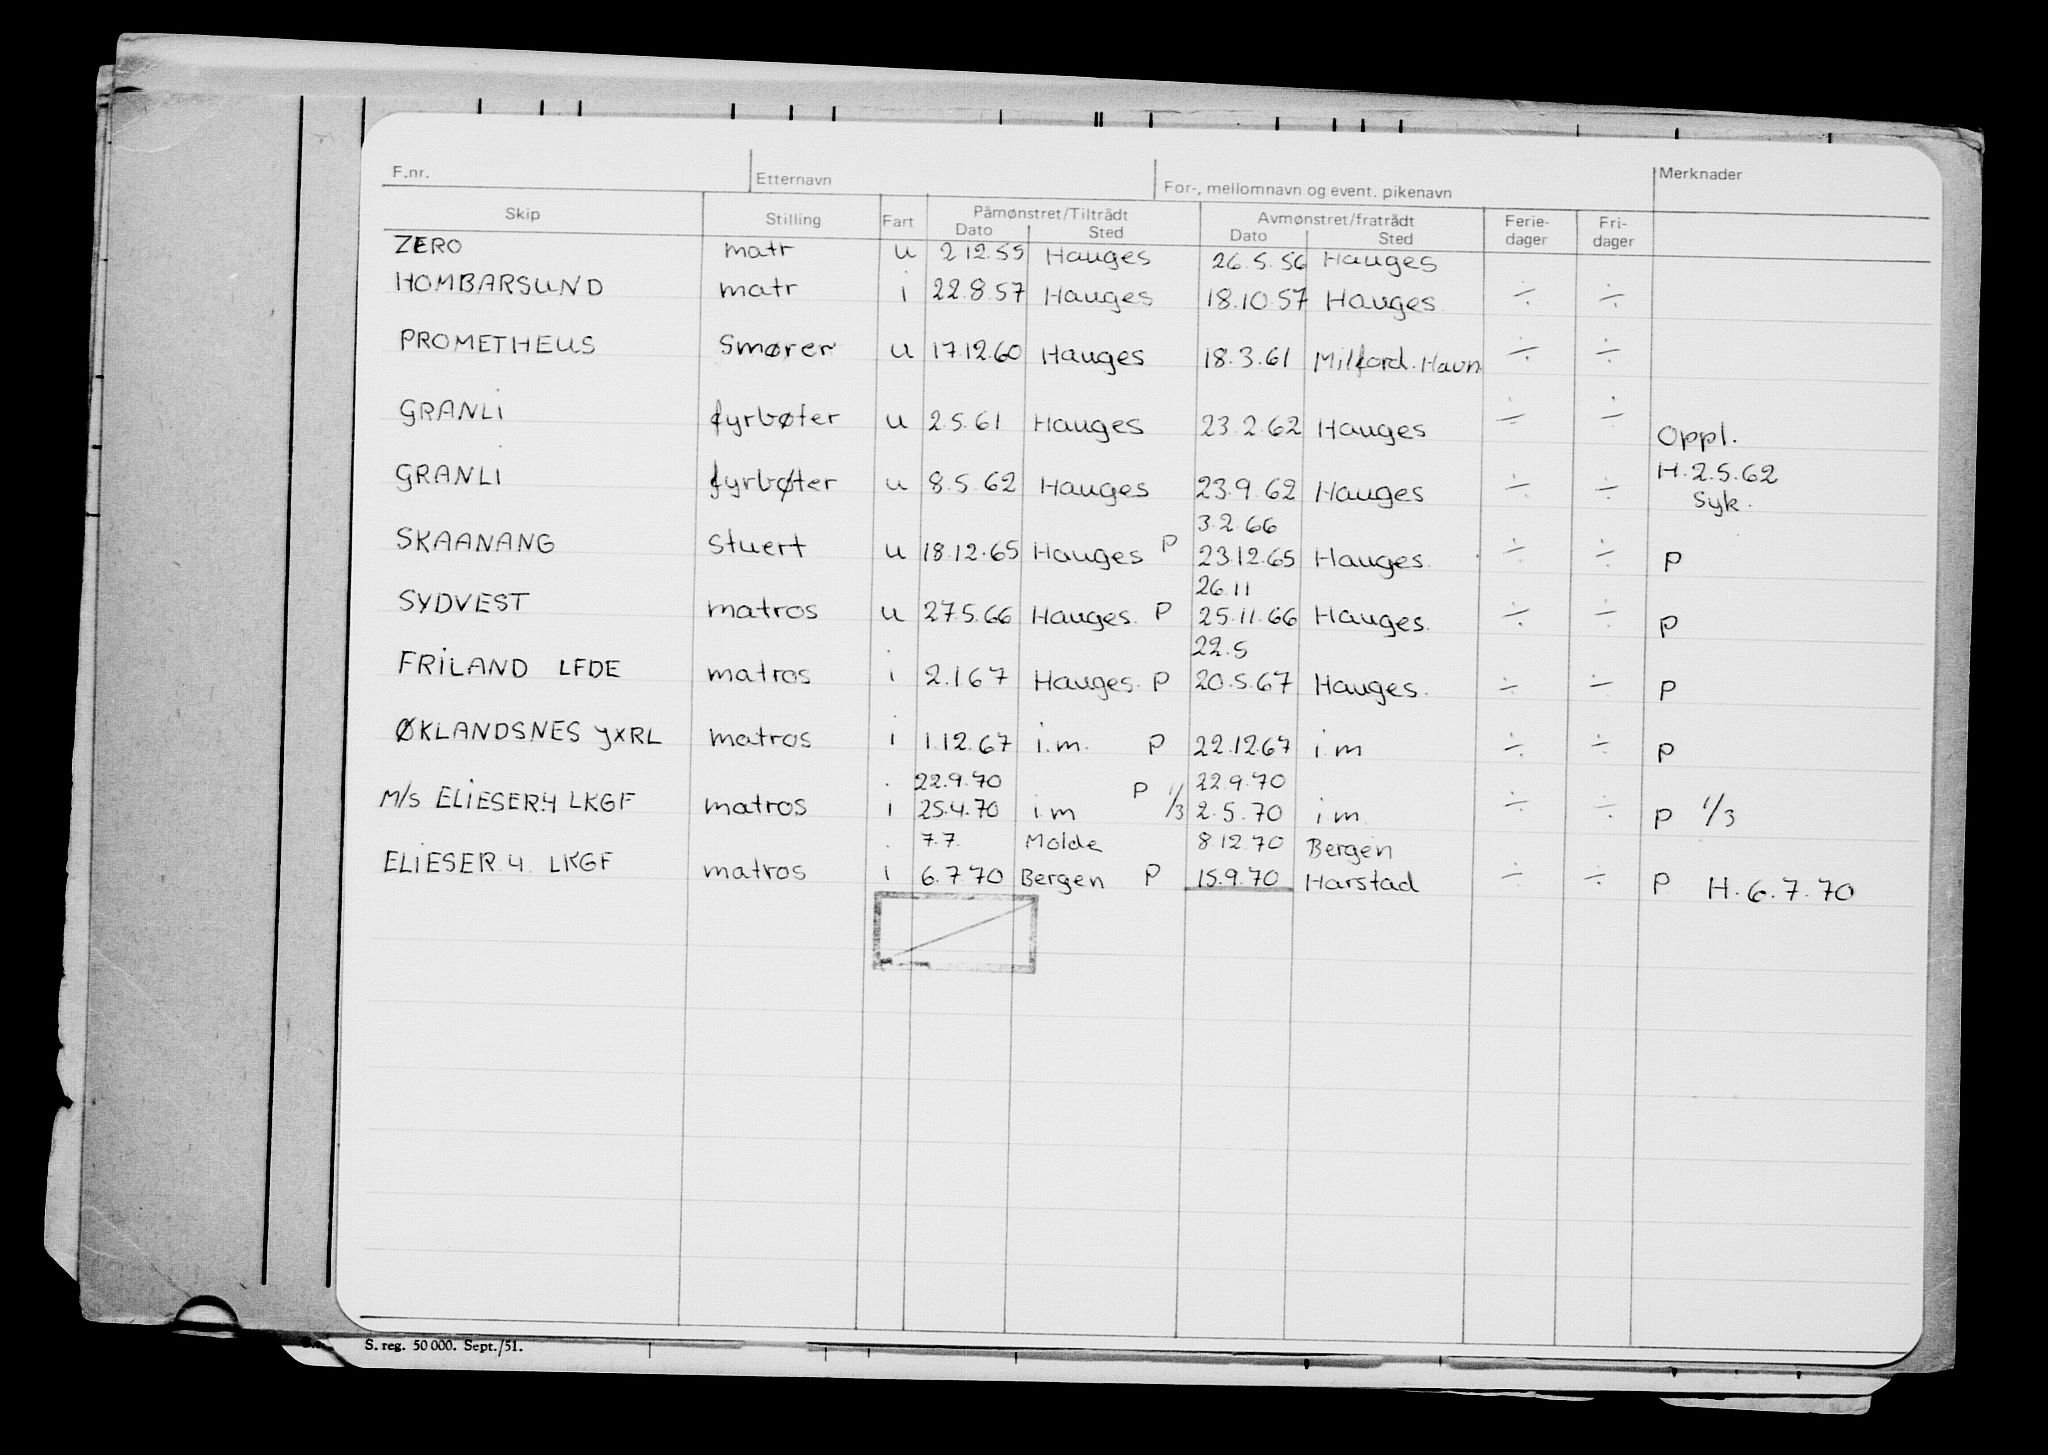 F.nr. Etternavn For-, mellomnavn og event. pikenavn Merknader
Skip Stilling Fart Påmønstret/Tiltrådt Avmønstret/fratrådt Ferie- Fri-
Dato Sted Dato Sted dager dager
ZERO matr u 2.12.55 Hauges 26.5.56 Hauges
HOMBARSUND matr i 22.8.57 Hauges 18.10.57 Hauges ÷ ÷
PROMETHEUS Smører u 17.12.60 Hauges 18.3.61 Milford.Havn ÷ ÷
GRANLI fyrbøter u 2.5.61 Hauges 23.2.62 Hauges ÷ ÷ Oppl.
H.2.5.62
GRANLI fyrbøter u 8.5.62 Hauges 23.9.62 Hauges ÷ ÷ Syk.
3.2.66
SKAANANG Stuert u 18.12.65 Hauges P 23.12.65 Hauges. ÷ ÷ P
26.11
SYDVEST matros u 27.5.66 Hauges. P 25.11.66 Hauges. ÷ ÷ P
22.5
FRILAND LFDE matros i 2.1.67 Hauges. P 20.5.67 Hauges. ÷ ÷ P
ØKLANDSNES YXRL matros i 1.12.67 i.m. P 22.12.67 i.m ÷ ÷ P
22.9.70 22.9.70
M/S ELIESER.4 LKGF matros i 25.4.70 i.m P 1/3 2.5.70 i.m. ÷ ÷ P 1/3
7.7. Molde 8.12.70 Bergen
ELIESER.4. LKGF matros i 6.7.70 Bergen P 15.9.70 Harstad ÷ ÷ P H.6.7.70
S. reg. 50 000. Sept./51.